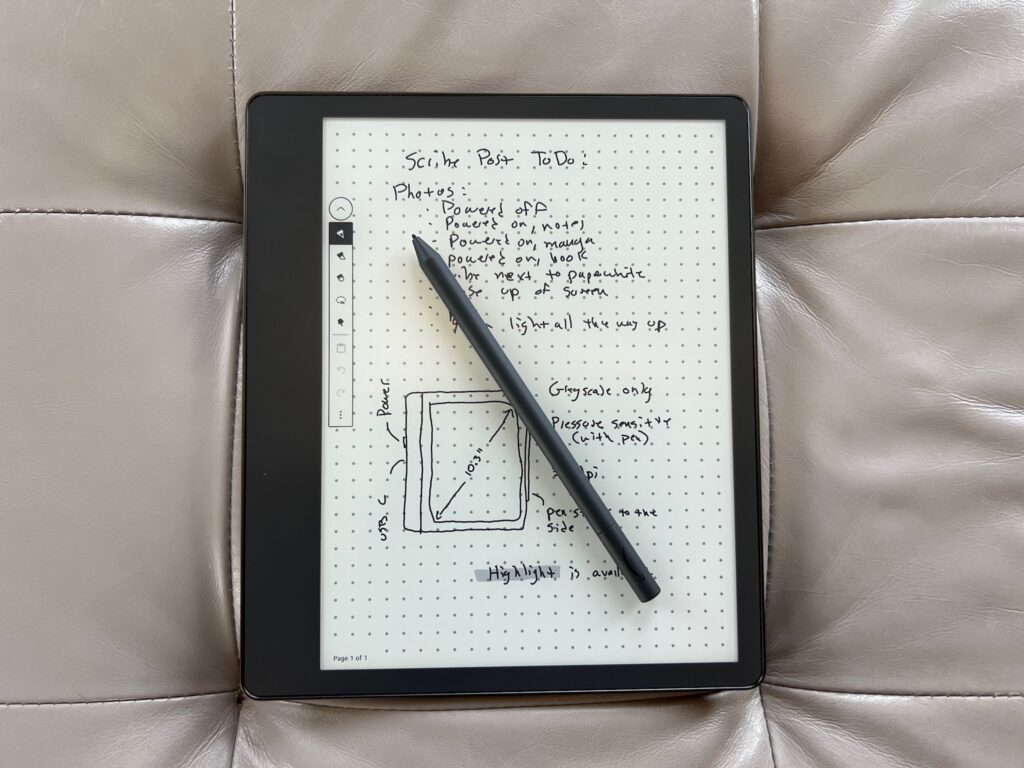 Scribe Post ToDo:
Photos:
Powered off
Powered on, notes
Powered on, manga
powered on, book
next to paperwhite
up of screen
light all the way up
Power
USB C
10.3"
Greyscale only
Pressure sensitive
(with pen)
pen to the
side
Highlight is
Page 1 of 1